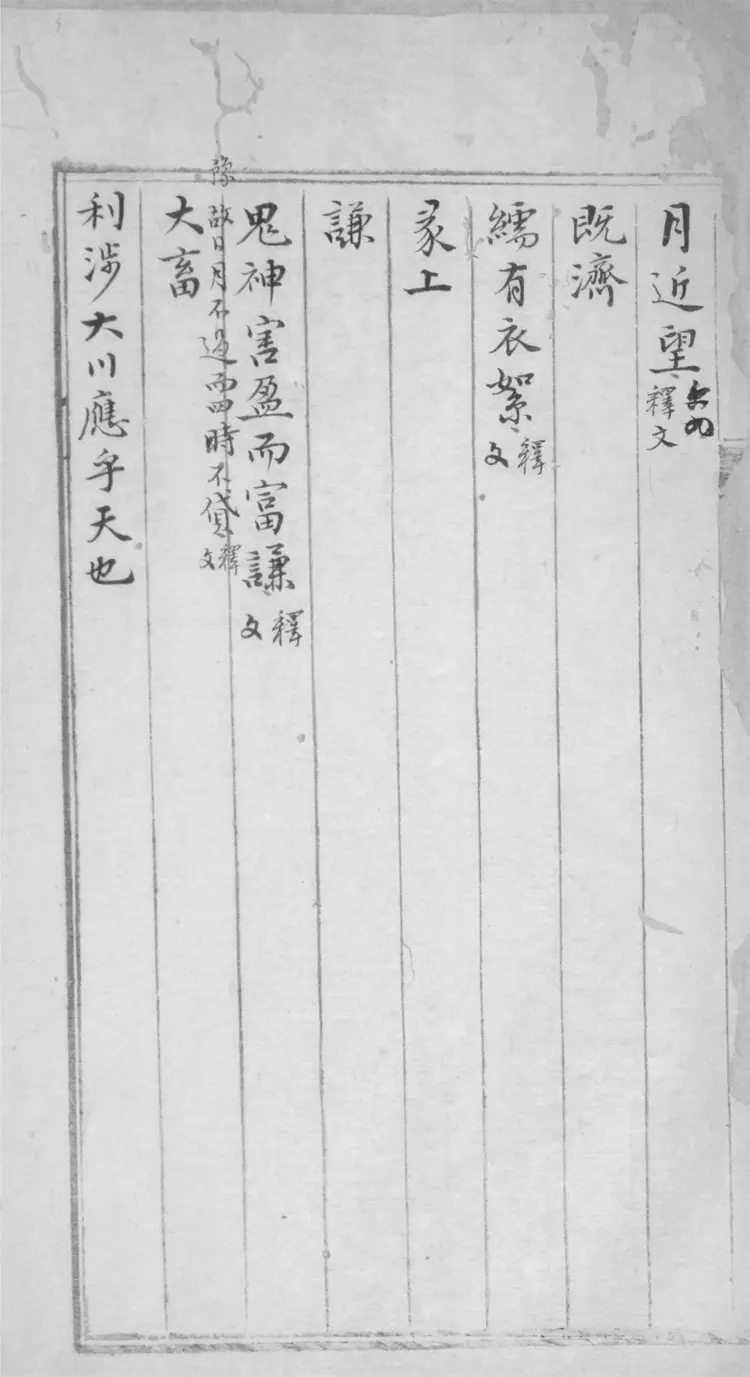 月近望釋文
既濟
繻有衣絮釋文
彖上
謙
鬼神害盈而富謙釋文
豫 故日月不過而四時不貸釋文
大畜
利涉大川應乎天也